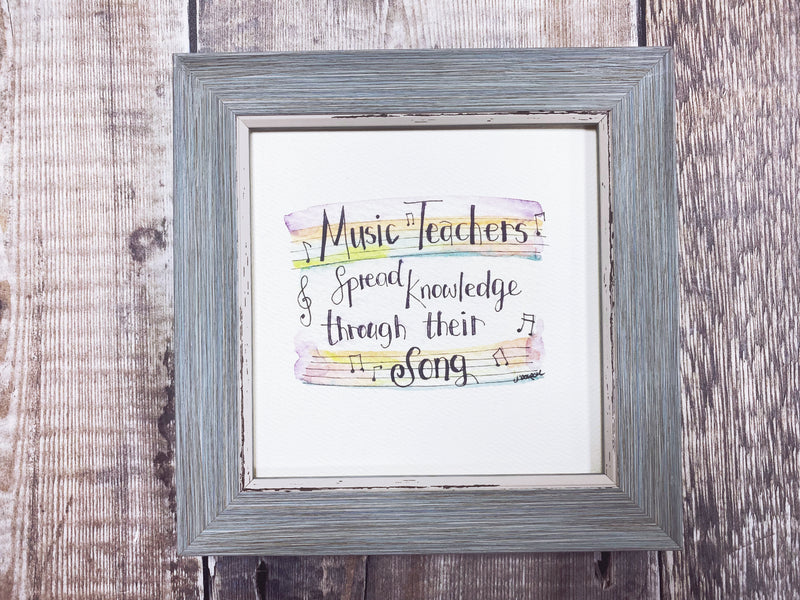 Music Teachers
Spread Knowledge
through their
Song